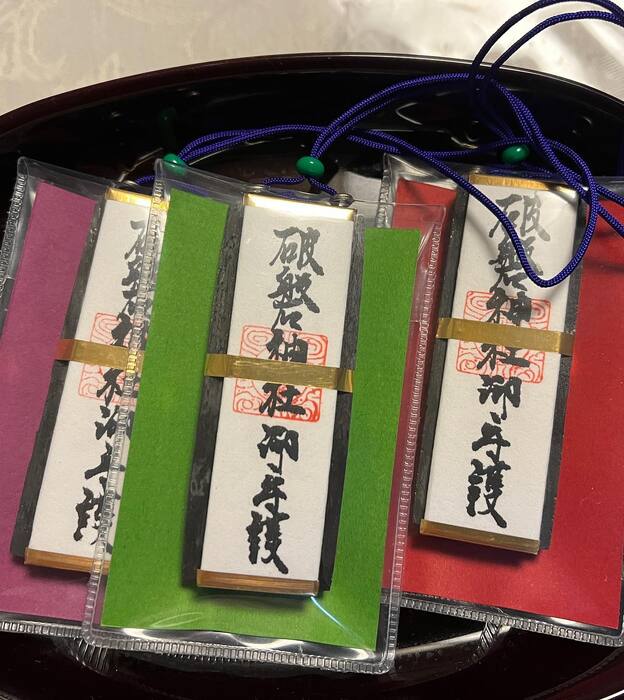 破磐神社御守護
破磐神社御守護
破磐神社御守護